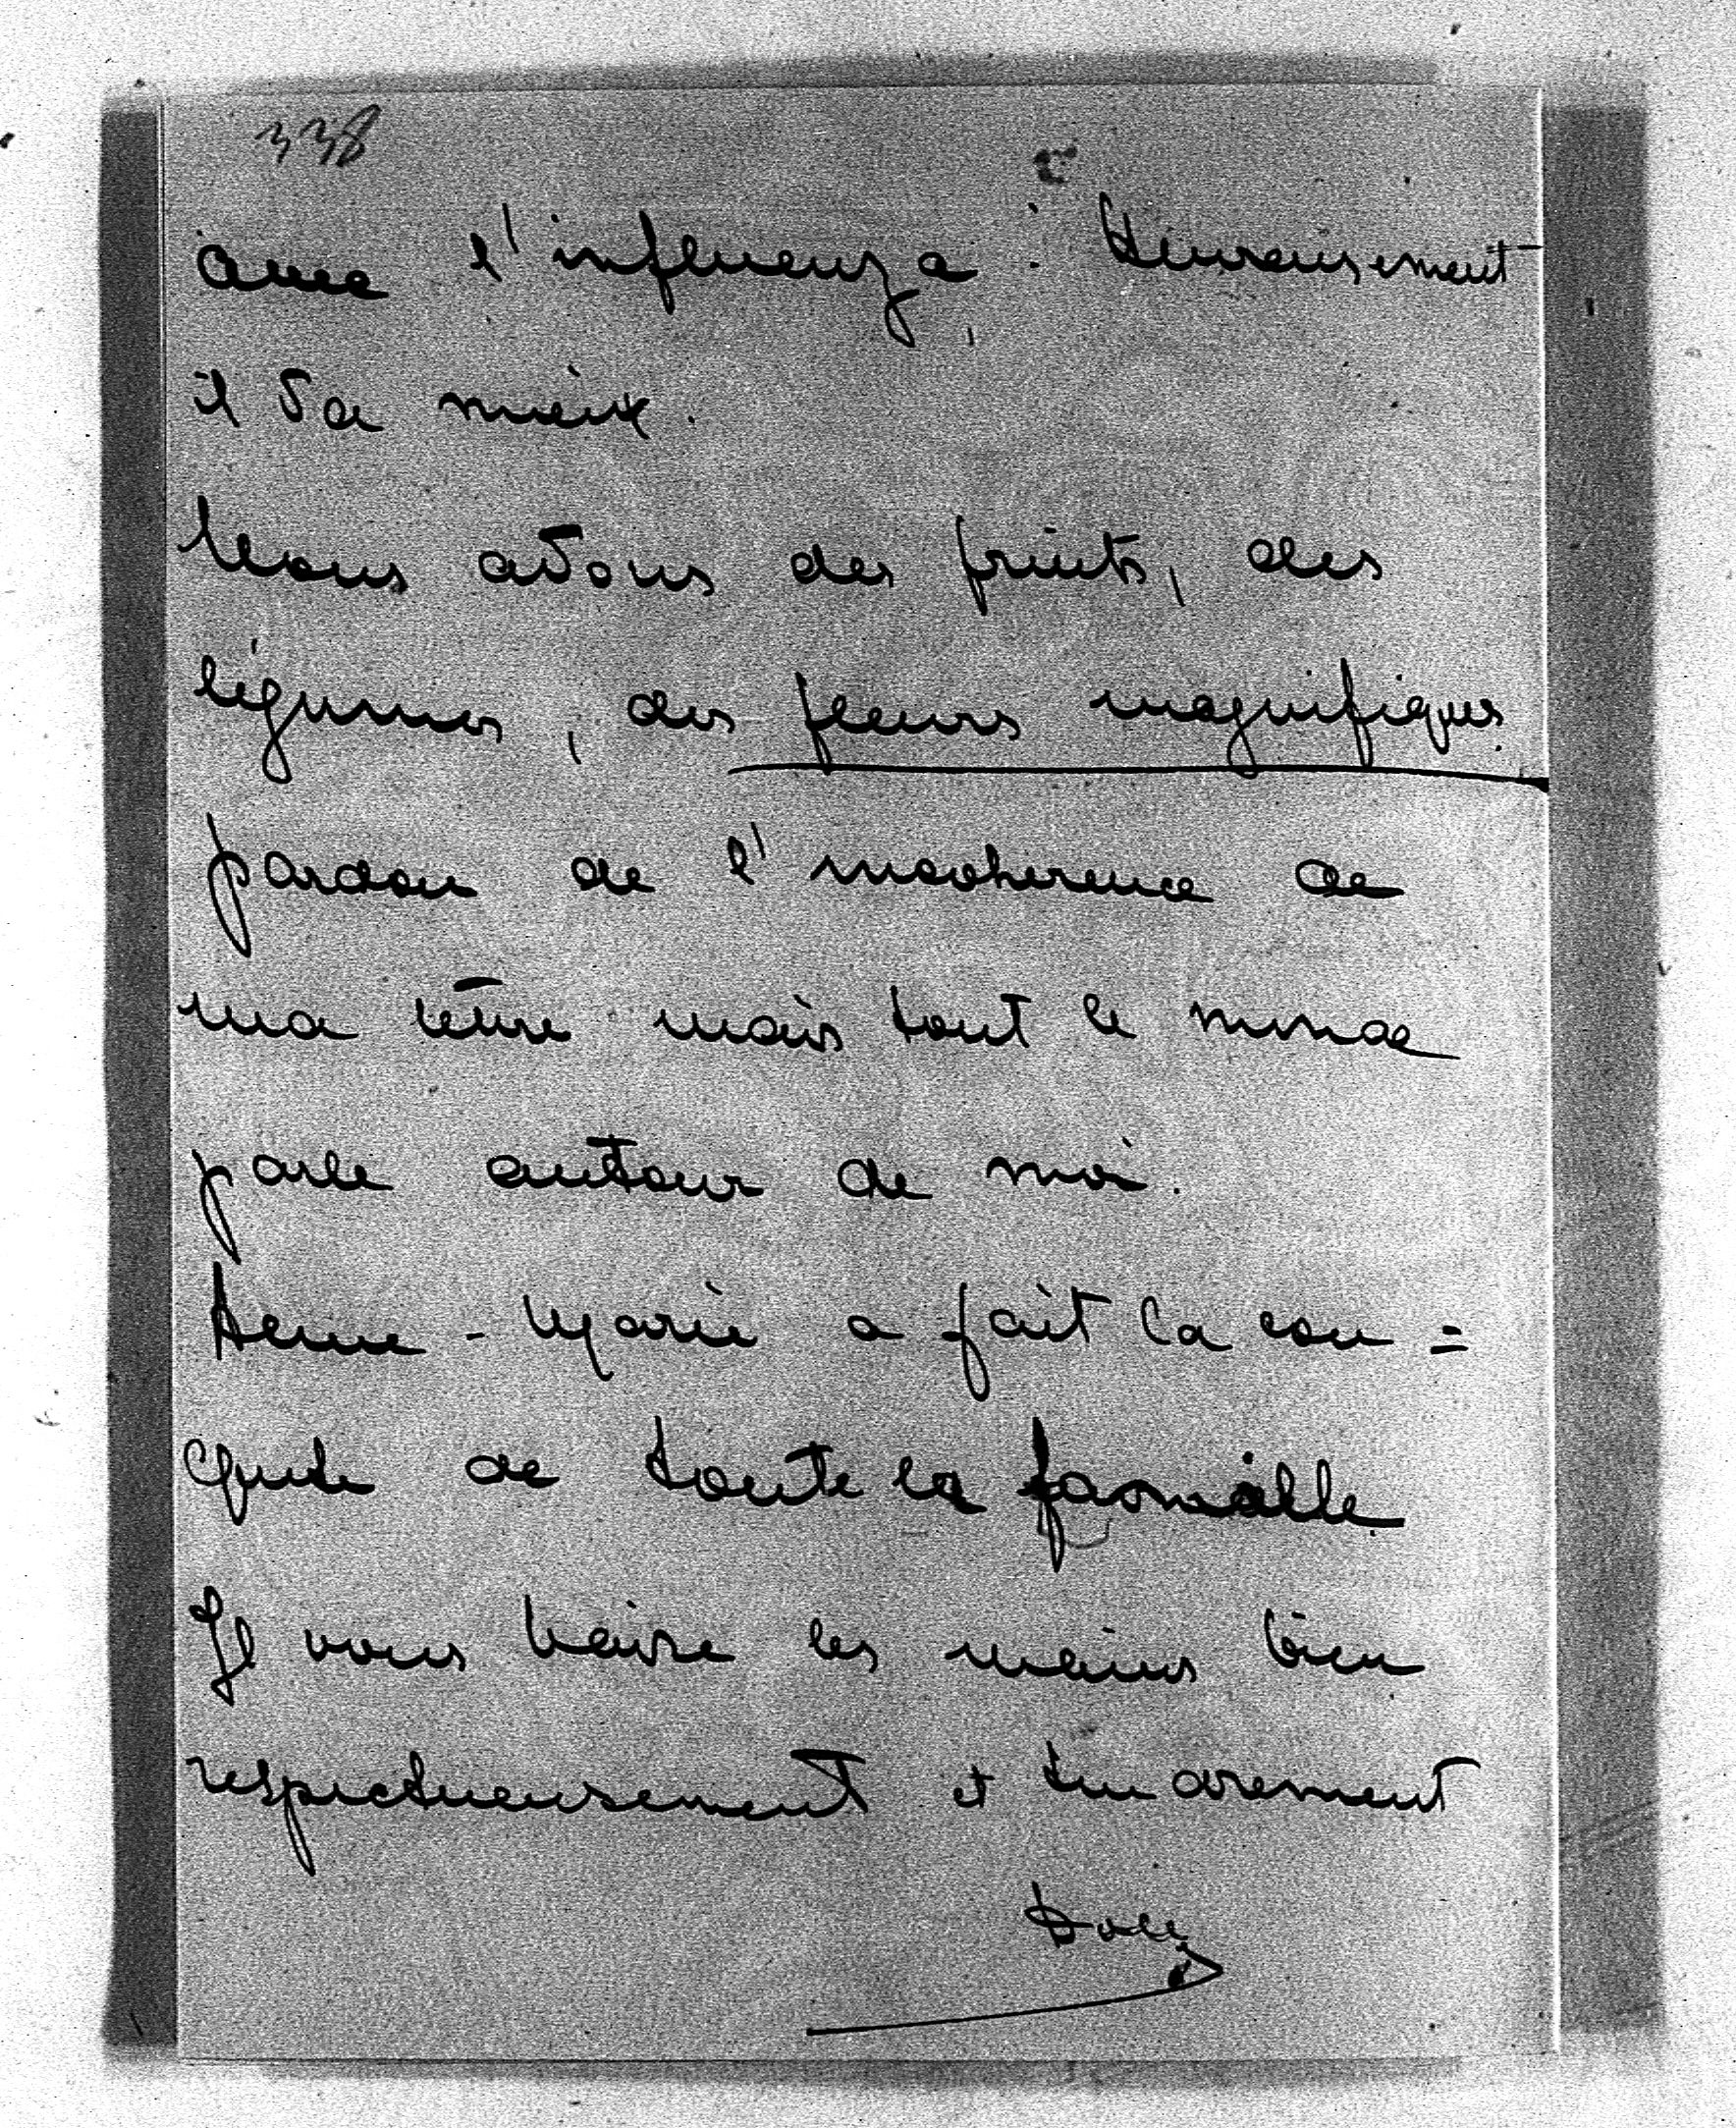 338
avec l'influenza. Heureusement
il va mieux.
Nous avons des fruits, des
légumes, des fleurs magnifiques.
pardon de l'incoherence de
ma lettre mais tout le monde
parle autour de moi.
Anne-Marie a fait la con=
quête de toute la famille.
Je vous baise les mains bien
respectueusement et tendrement